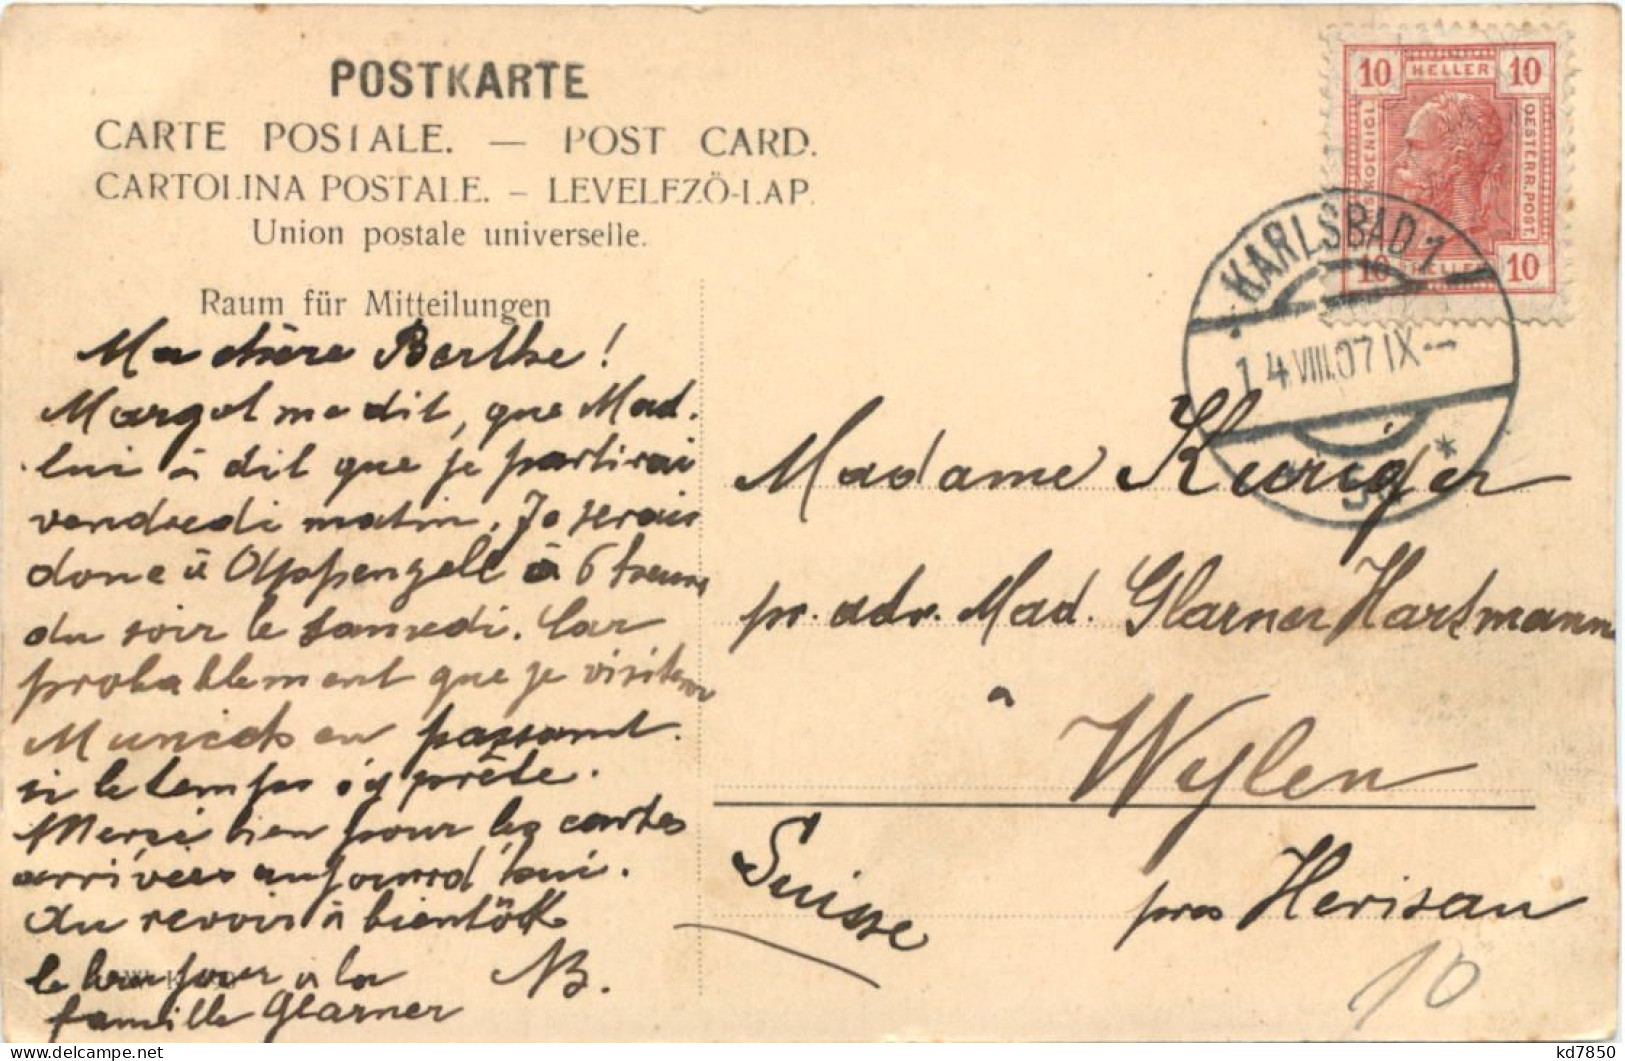 POSTKARTE
CARTE POSTALE. — POST CARD.
CARTOLINA POSTALE. – LEVELEZŐ-LAP.
Union postale universelle.
Raum für Mitteilungen
Ma chère Berthe!
Margot me dit, que Mad.
lui à dit que je partirai
vendredi matin. Je serais
donc à Appenzell à 6 heures
du soir le samedi. Car
probablement que je visiterai
Munich en passant.
si le temps s'y prête.
Merci bien pour les cartes
arrivées aujourd'hui.
Au revoir à bientôt
le bonjour à la NB.
famille Glarner
10 HELLER 10
OESTERR. POST.
10 HELLER 10
KARLSBAD 1
14 VIII 07 IX
Madame Kuriger
pr. adr. Mad. Glarner Hartmann
à
Wylen
près Herisau
Suisse
10
kd7850